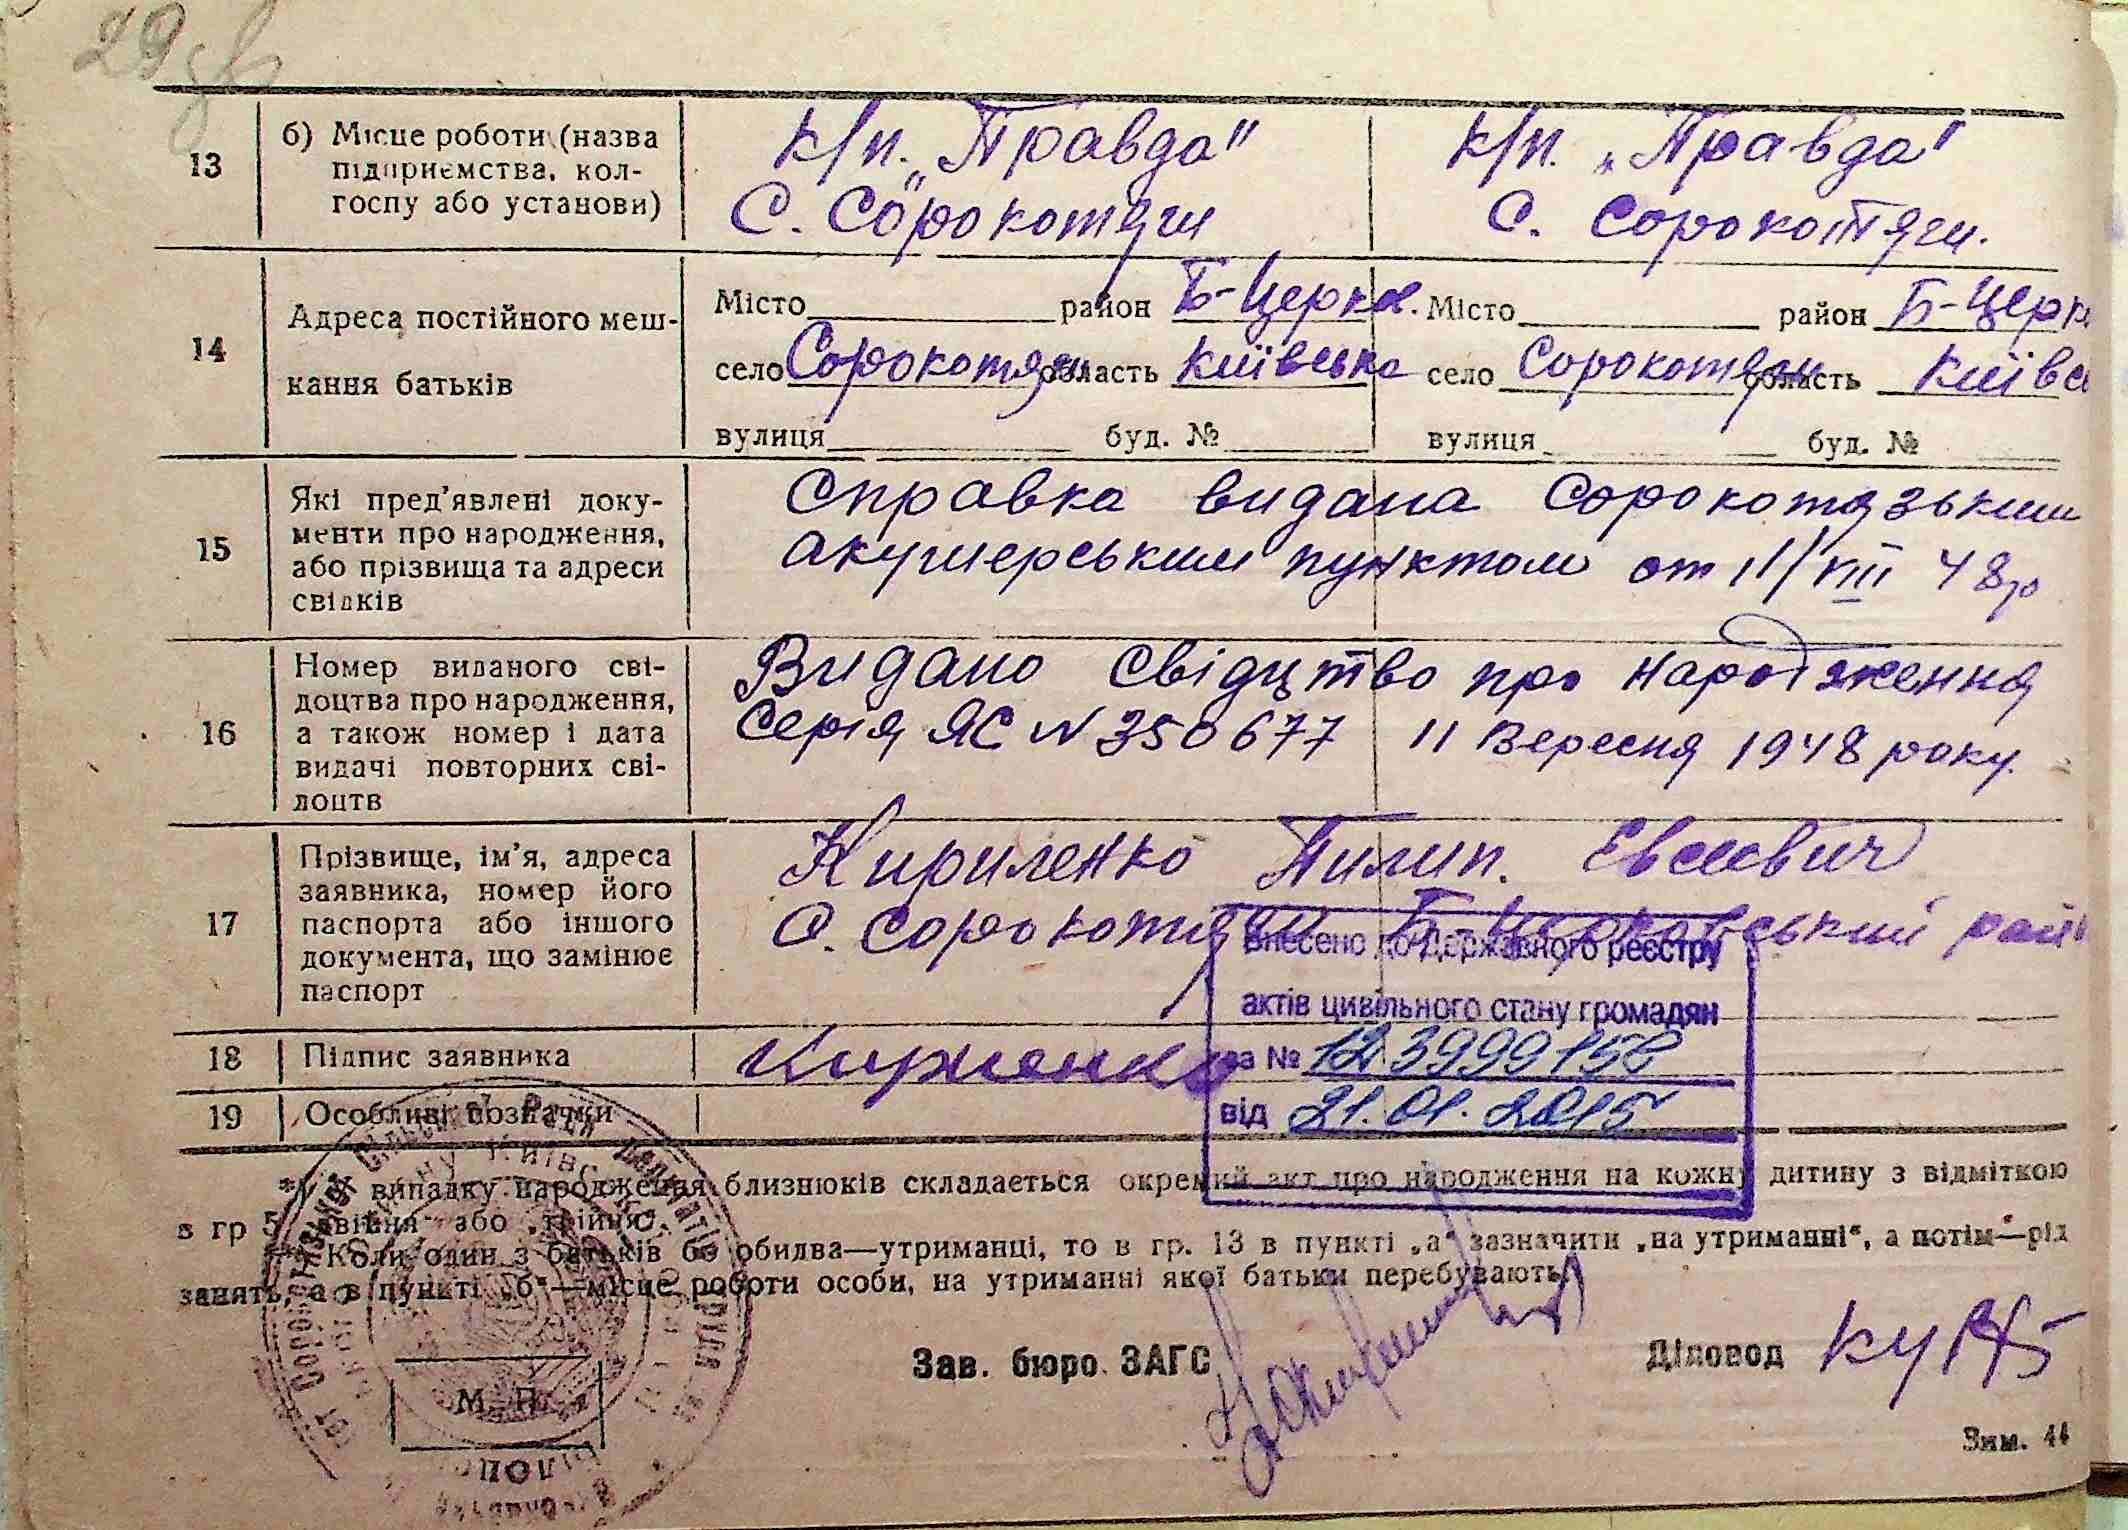 29
13 б) Місце роботи (назва підприємства, колгоспу або установи)
К/п. „Правда"
С. Сорокотяги
К/п. „Правда"
С. Сорокотяги.
14 Адреса постійного мешкання батьків
Місто район Б-Церков.
село Сорокотяги область Київська
вулиця буд. №
Місто район Б-Церк
село Сорокотяги область Київс
вулиця буд. №
15 Які пред'явлені документи про народження, або прізвища та адреси свідків
Справка видана Сорокотязьким
акушерським пунктом от 11/VIII 48р
16 Номер виданого свідоцтва про народження, а також номер і дата видачі повторних свідоцтв
Видано свідцтво про народження
Серія ЯС N 350677 11 Вересня 1948 року.
17 Прізвище, ім'я, адреса заявника, номер його паспорта або іншого документа, що замінює паспорт
Кириленко Пилип. Евсеевич
С. Сорокотяги Б-Церковський рай
Внесено до Державного реєстру
актів цивільного стану громадян
18 Підпис заявника
за № 123999158
19 Особливі позначки
від 21.01.2015
*) У випадку народження близнюків складається окремий акт про народження на кожну дитину з відміткою
в гр 5 „двійня" або „трійня".
Коли один з батьків бо обидва—утриманці, то в гр. 13 в пункті „а" зазначити „на утриманні", а потім—рід
занять, а в пункті „б"—місце роботи особи, на утриманні якої батьки перебувають.
Зав. бюро ЗАГС
Діловод
М. П.
Зим. 44